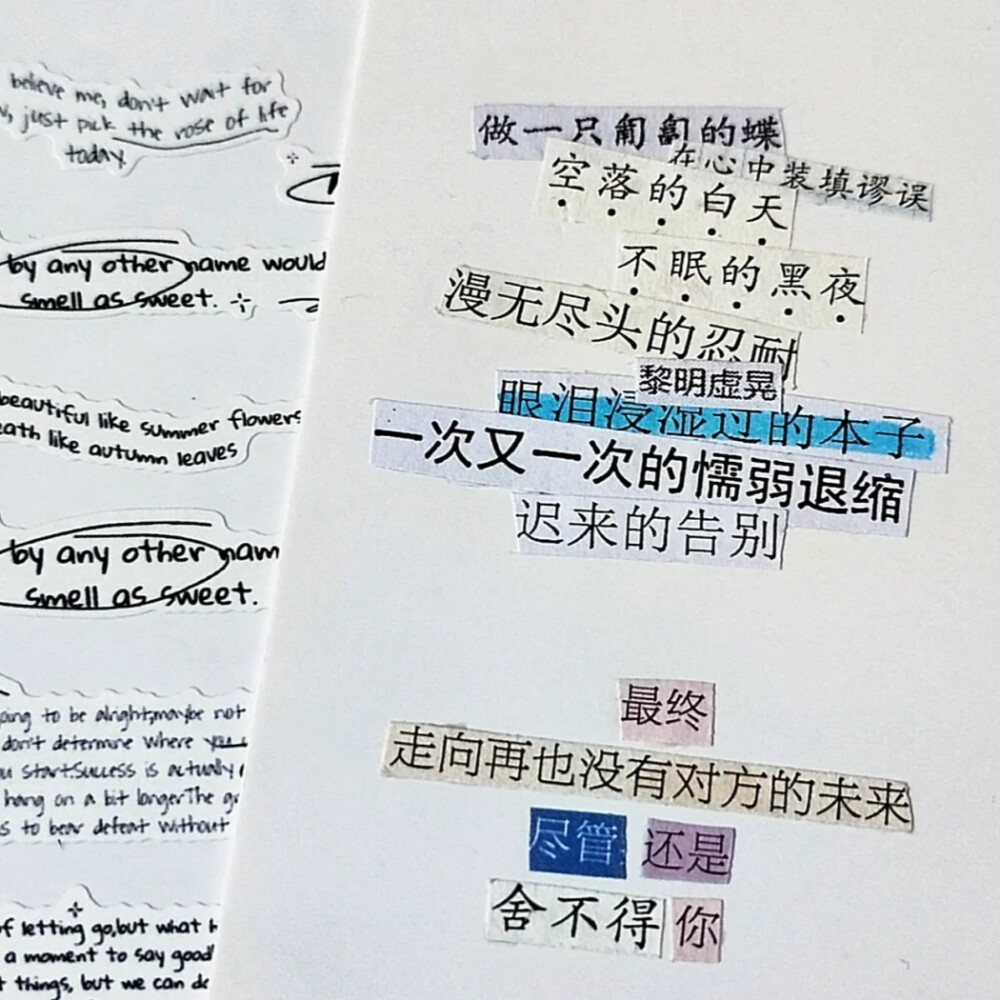 believe me, don't wait for
, just pick the rose of life
today.
by any other name would
smell as sweet.
beautiful like summer flowers
ath like autumn leaves
by any other nam
smell as sweet.
oing to be alright,maybe not
don't determine where you
u start.Success is actually
hang on a bit longer.The gr
s to bear defeat without
of letting go,but what h
a moment to say good
t things, but we can do
做一只匍匐的蝶
在心中装填谬误
空落的白天
不眠的黑夜
漫无尽头的忍耐
黎明虚晃
眼泪浸湿过的本子
一次又一次的懦弱退缩
迟来的告别
最终
走向再也没有对方的未来
尽管 还是
舍不得 你